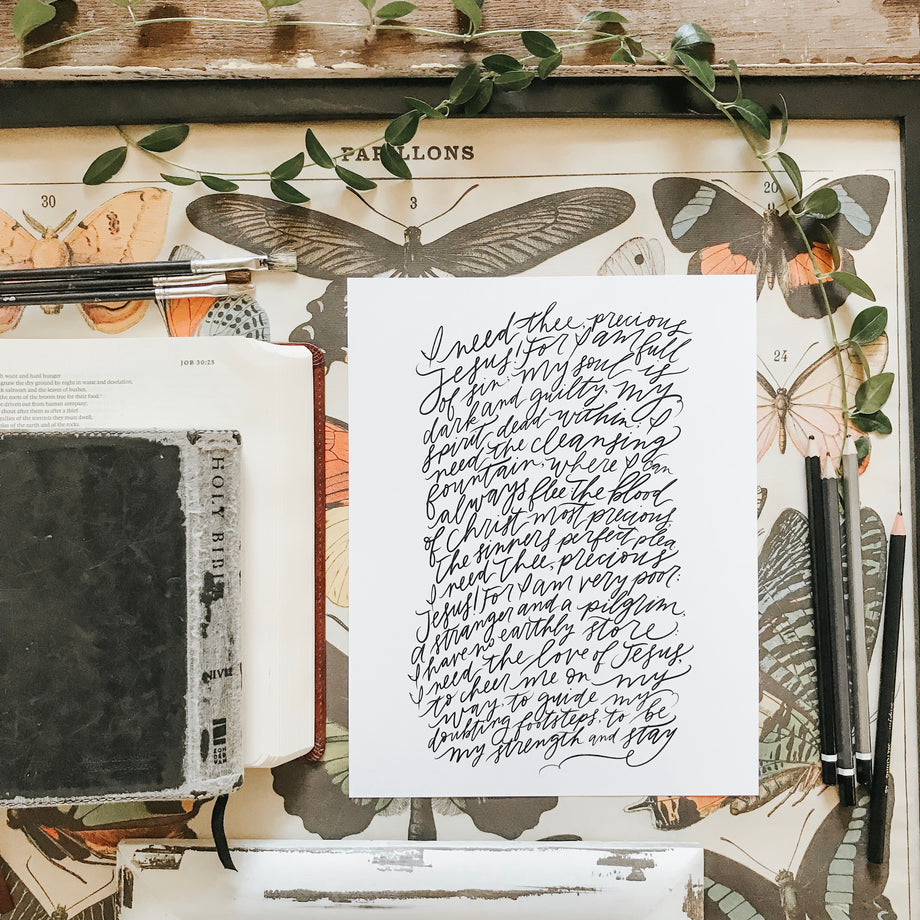 PAPILLONS
30
3
20
24
JOB 30:25
want and hard hunger
gnaw the dry ground by night in waste and desolation;
saltwort and the leaves of bushes,
the roots of the broom tree for their food.
driven out from human company;
shout after them as after a thief
gullies of the torrents they must dwell,
earth and of the rocks.
HOLY BIBLE
NIV
ZON
DER
VAN
I need thee, precious
Jesus! For I am full
of sin; My soul is
dark and guilty, My
spirit dead within; I
need the cleansing
fountain, where I can
always flee The blood
of Christ most precious
The sinners perfect plea
I need Thee, precious
Jesus! For I am very poor;
a stranger and a pilgrim,
I have no earthly store;
I need the love of Jesus,
to cheer me on my
way, to guide my
doubting footsteps, to be
my strength and stay